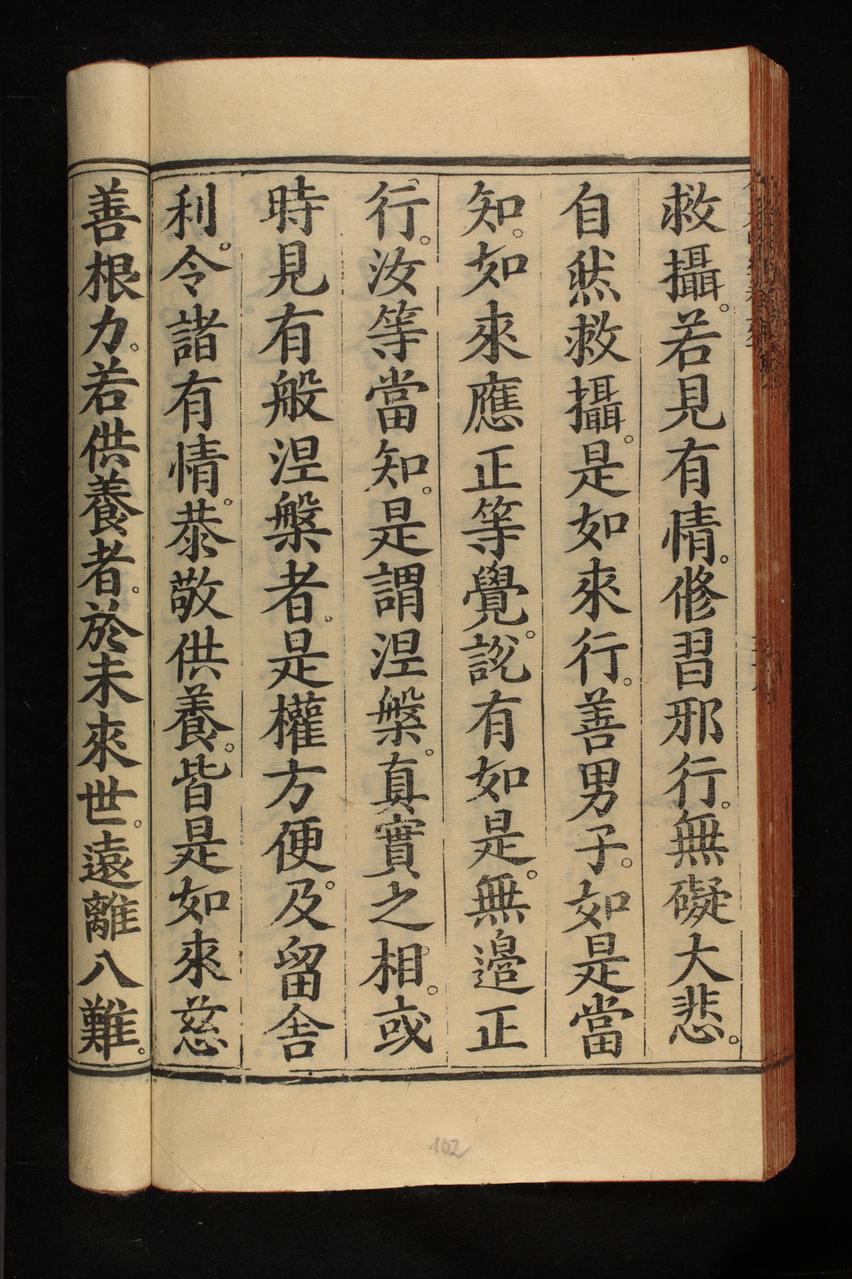 救攝。若見有情。修習邪行。無礙大悲。
自然救攝。是如來行。善男子。如是當
知。如來應正等覺。說有如是。無邊正
行。汝等當知。是謂涅槃。真實之相。或
時見有般涅槃者。是權方便。及留舍
利。令諸有情。恭敬供養。皆是如來慈
善根力。若供養者。於未來世。遠離八難。
102